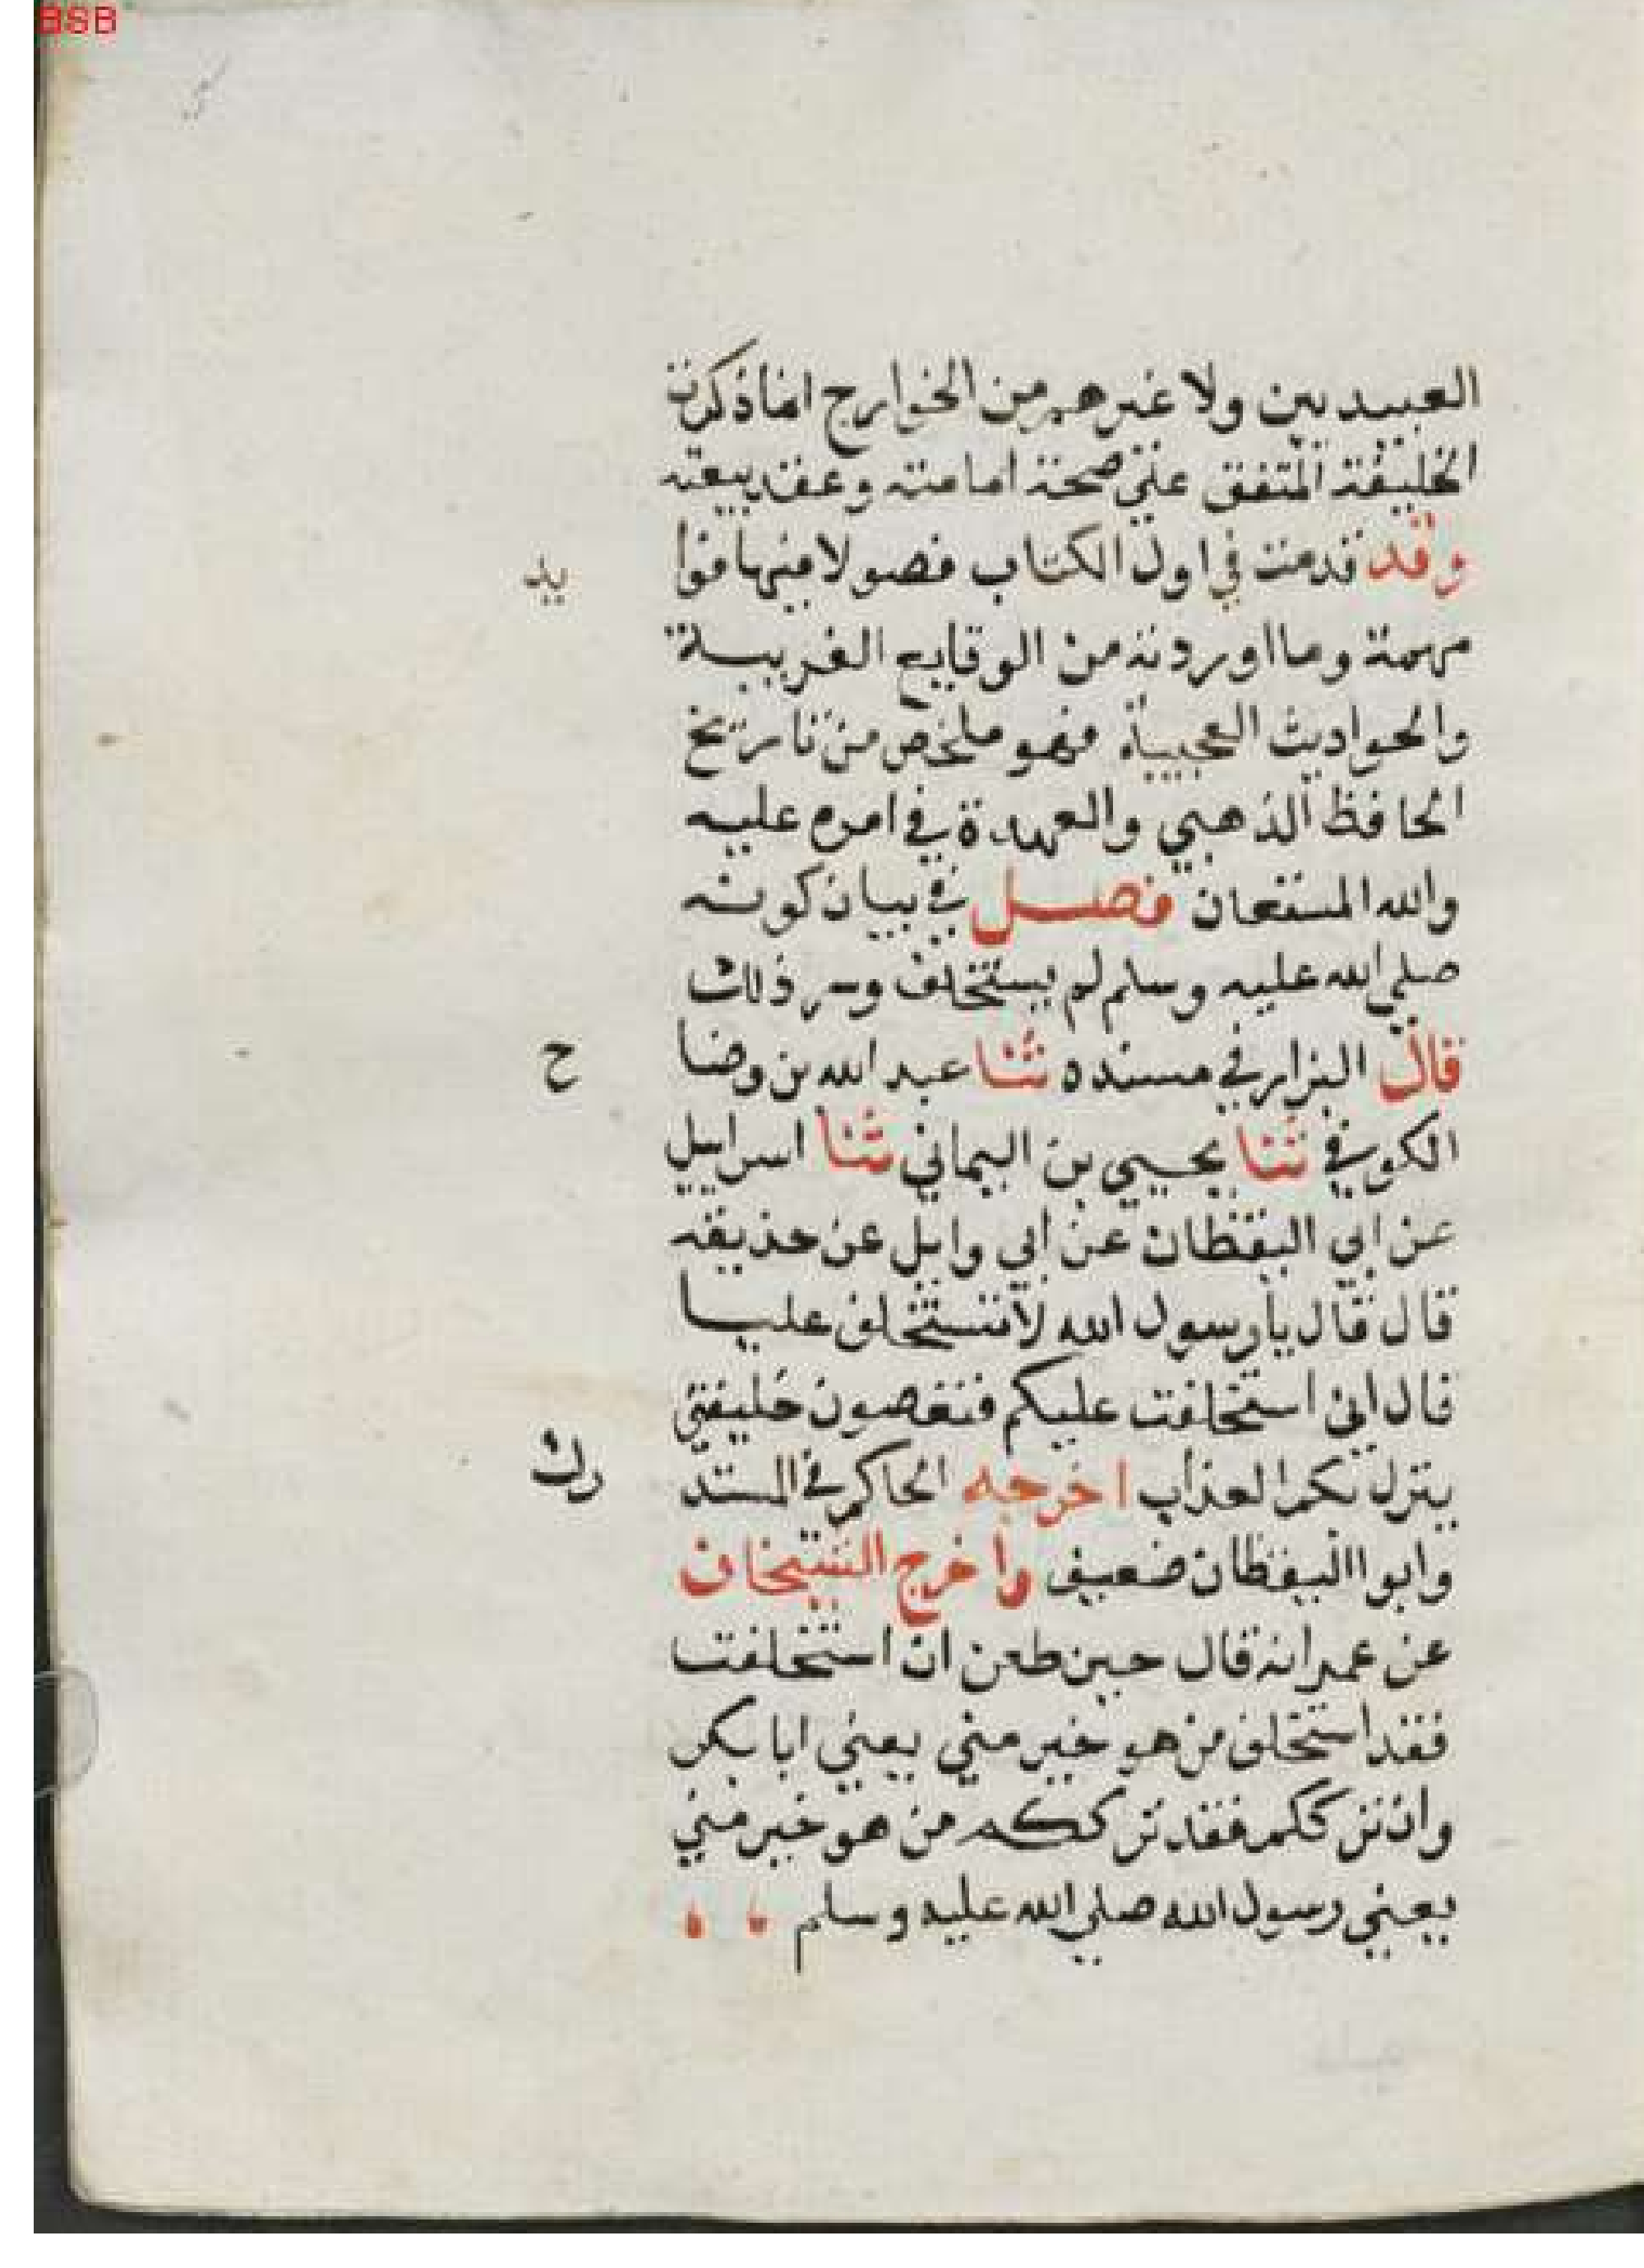 BSB
العبيديين ولا غيرهم من الخوارج انما ذكرت
الخليفة المتفق علي صحة امامته وعقد بيعته
وقد قدمت في اول الكتاب فصولا فيها فوا
يد
مهمة وما اوردته من الوقايع الغريبة
والحواديث العجيبة فهو ملخص من تاريخ
الحافظ الذهبي والعهدة في امره عليه
والله المستعان فصل في بيان كونه
صلي الله عليه وسلم لم يستخلف وسر ذلك
قال البزار في مسنده ثنا عبد الله بن وضا
ح
الكوفي ثنا يحيي بن اليماني ثنا اسراييل
عن ابي اليقظان عن ابي وايل عن حذيفه
قال قال يا رسول الله لا تستخلف عليا
قال اني استخلفت عليكم فتعصون خليفتي
ينزل بكم العذاب اخرجه الحاكم في المستد
رك
وابو االيقظان ضعيف واخرج الشيخان
عن عمر انه قال حين طعن ان استخلفت
فقد استخلف من هو خير مني يعني ابا بكر
وان تركتكم فقد تركككم من هو خير مني
يعني رسول الله صلي الله عليه وسلم